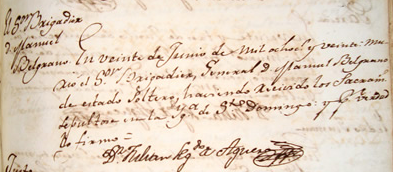 El Sor. Brigadier
d. Manuel
Belgrano
En veinte de Junio de mil ochocs. y veinte: mu-
rió el Sor. Brigadier, General d. Manuel Belgrano
de estado soltero, haviendo recivido los Sacram.
sepultose en la Yga. de Sto. Domingo: y pr. verdad
lo firmo =
Dr. Julian Sgdo. de Aguero